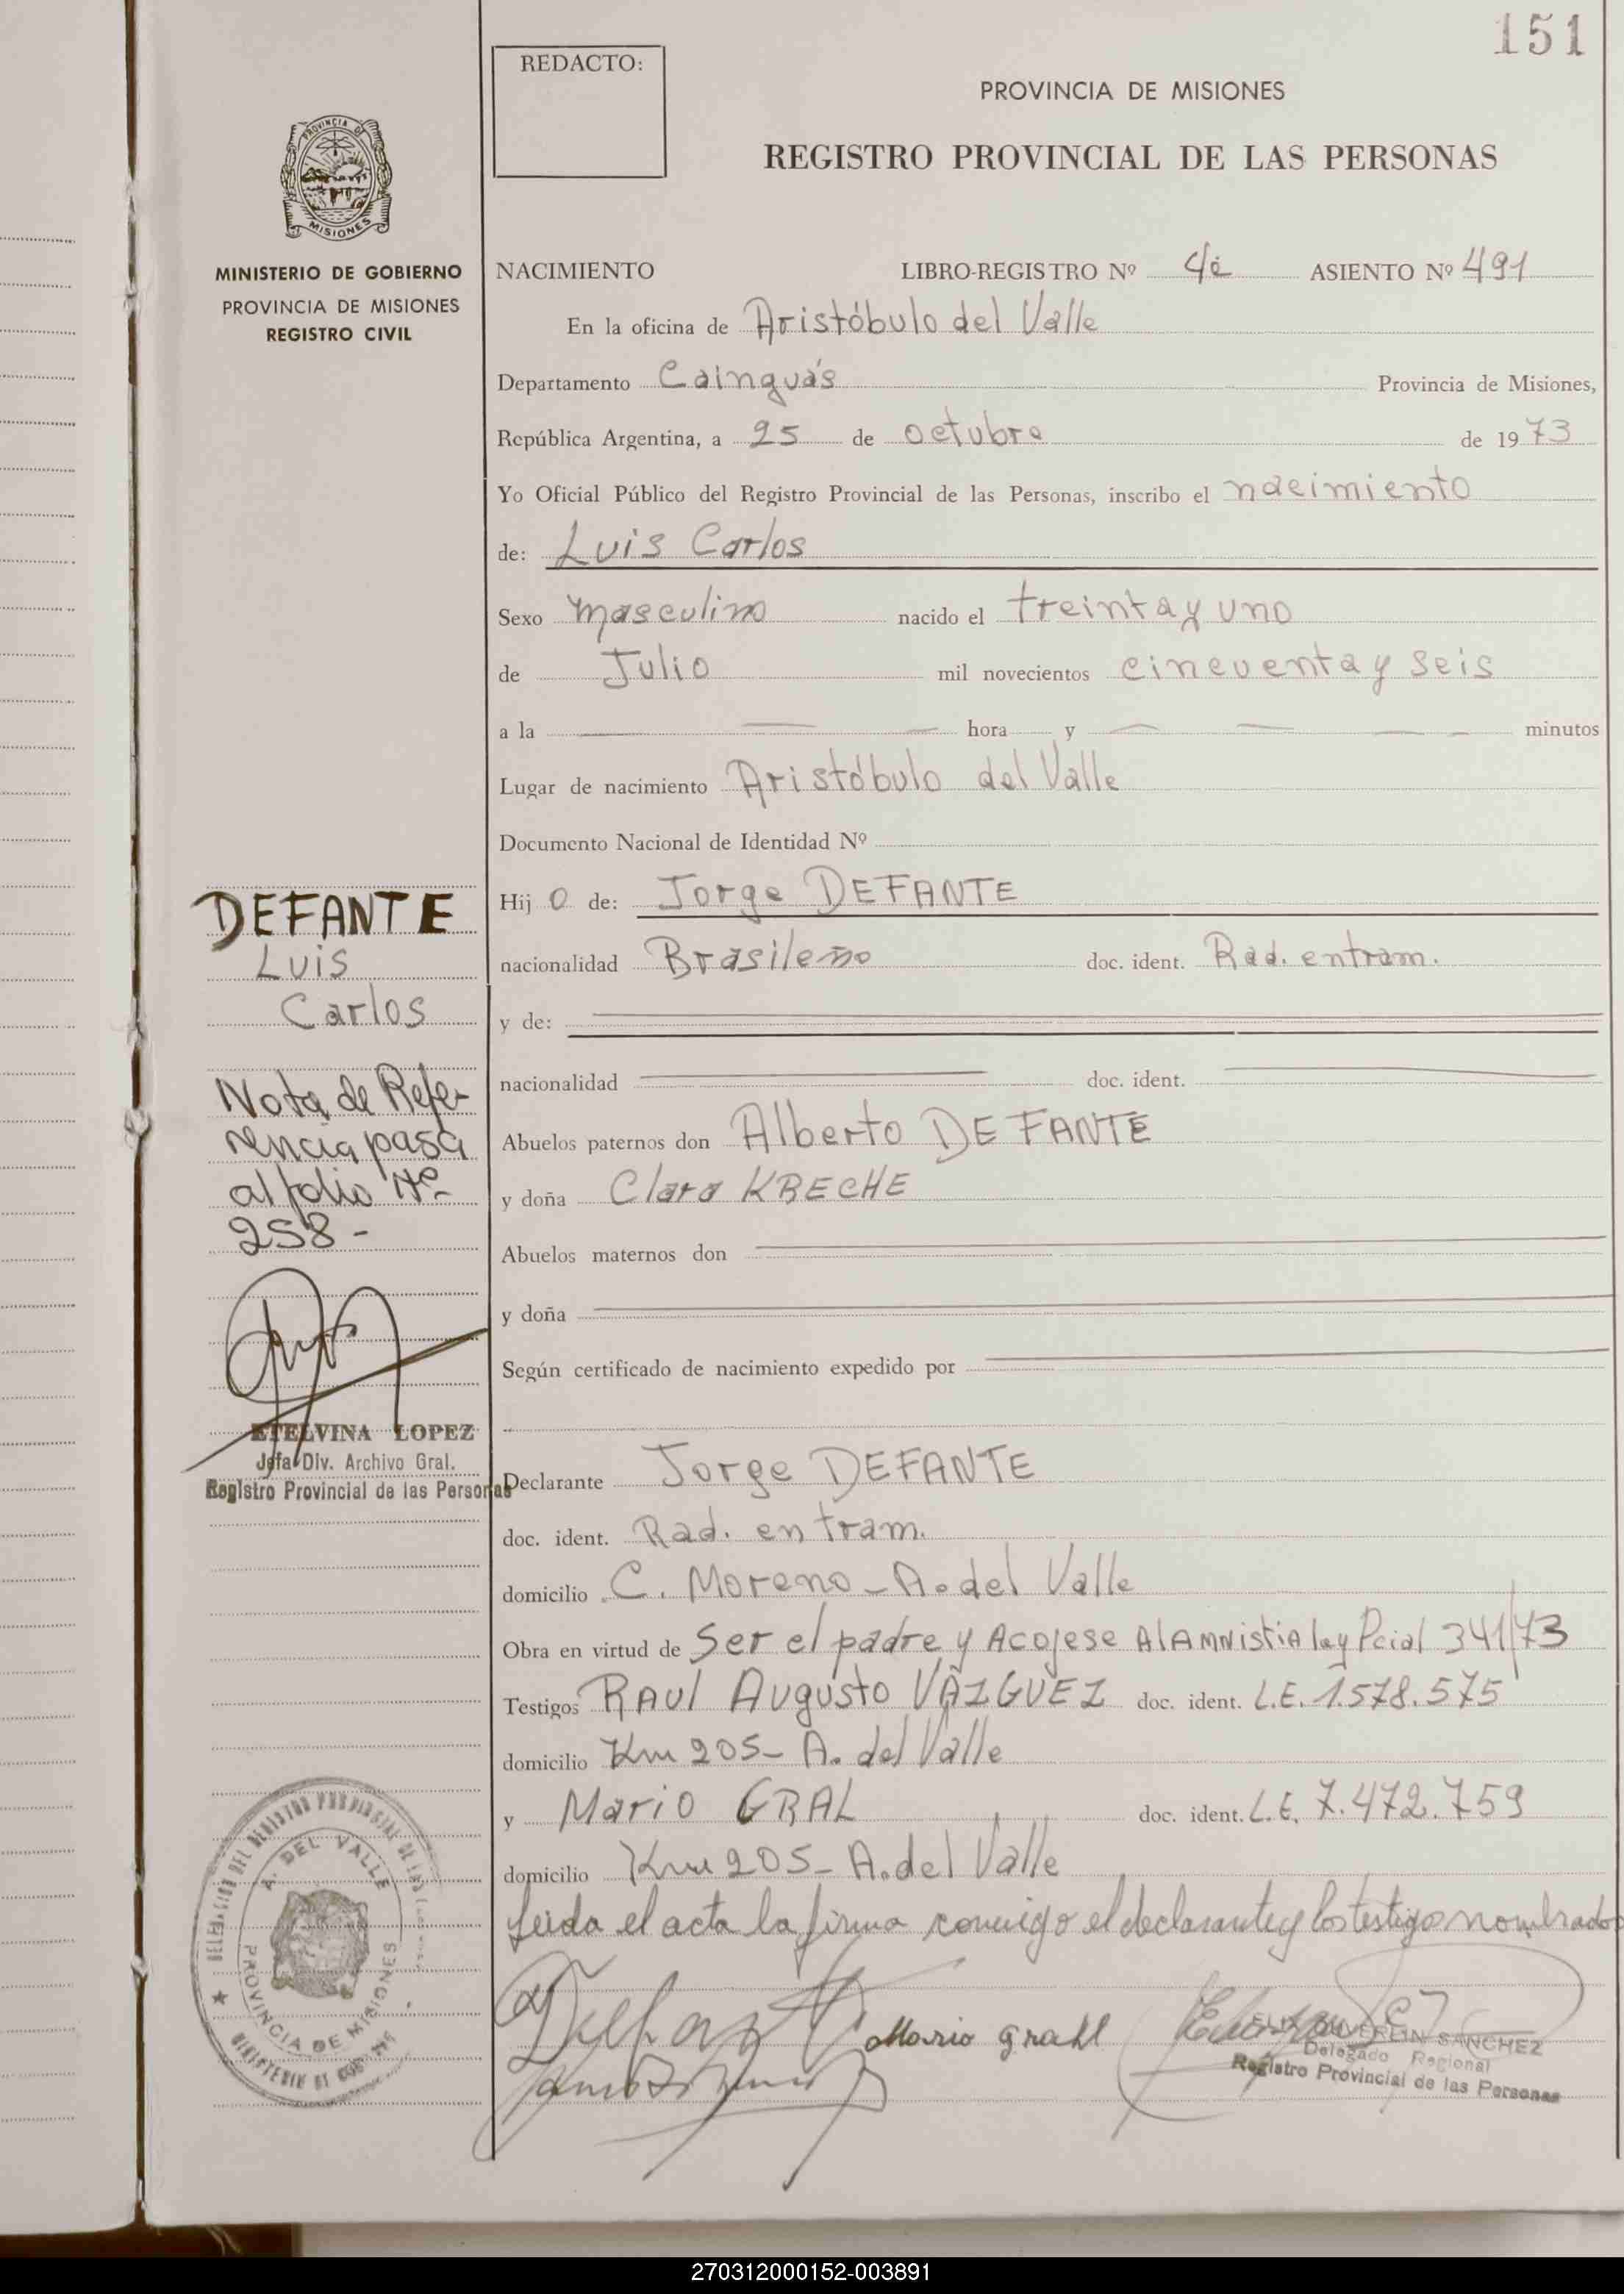 151
REDACTO:
PROVINCIA DE MISIONES
REGISTRO PROVINCIAL DE LAS PERSONAS
PROVINCIA DE
MISIONES
MINISTERIO DE GOBIERNO
PROVINCIA DE MISIONES
REGISTRO CIVIL
NACIMIENTO LIBRO-REGISTRO Nº ASIENTO Nº 491
En la oficina de Aristóbulo del Valle
Departamento Cainguás Provincia de Misiones,
República Argentina, a 25 de octubre de 1973
Yo Oficial Público del Registro Provincial de las Personas, inscribo el nacimiento
de: Luis Carlos
Sexo masculino nacido el treinta y uno
de Julio mil novecientos cincuenta y seis
a la hora y minutos
Lugar de nacimiento Aristóbulo del Valle
Documento Nacional de Identidad Nº
Hijo de: Jorge DEFANTE
nacionalidad Brasileño doc. ident. Rad. entram.
y de:
nacionalidad doc. ident.
Abuelos paternos don Alberto DEFANTE
y doña Clara KBECHE
Abuelos maternos don
y doña
Según certificado de nacimiento expedido por
Declarante Jorge DEFANTE
doc. ident. Rad. en tram.
domicilio C. Moreno - A. del Valle
Obra en virtud de Ser el padre y Acojese Al AMNistiA ley Pcial 341/73
Testigos RAul Augusto VÁZGUEZ doc. ident. L.E. 1.578.575
domicilio Km 205 - A. del Valle
y Mario GRAL doc. ident. L.E. 7.472.759
domicilio Km 205 - A. del Valle
Leida el acta la firma conmigo el declarante y los testigo nombrados
Mario Grahl
SANCHEZ
Delegado Regional
Registro Provincial de las Personas
DEFANTE
Luis
Carlos
Nota de Refe-
rencia pasa
al folio Nº
258-
ETELVINA LOPEZ
Jefa Div. Archivo Gral.
Registro Provincial de las Personas
DELEGACION DEL REGISTRO PROVINCIAL DE LAS PERSONAS
A. DEL VALLE
PROVINCIA DE MISIONES
MINISTERIO DE GOBIERNO
270312000152-003891